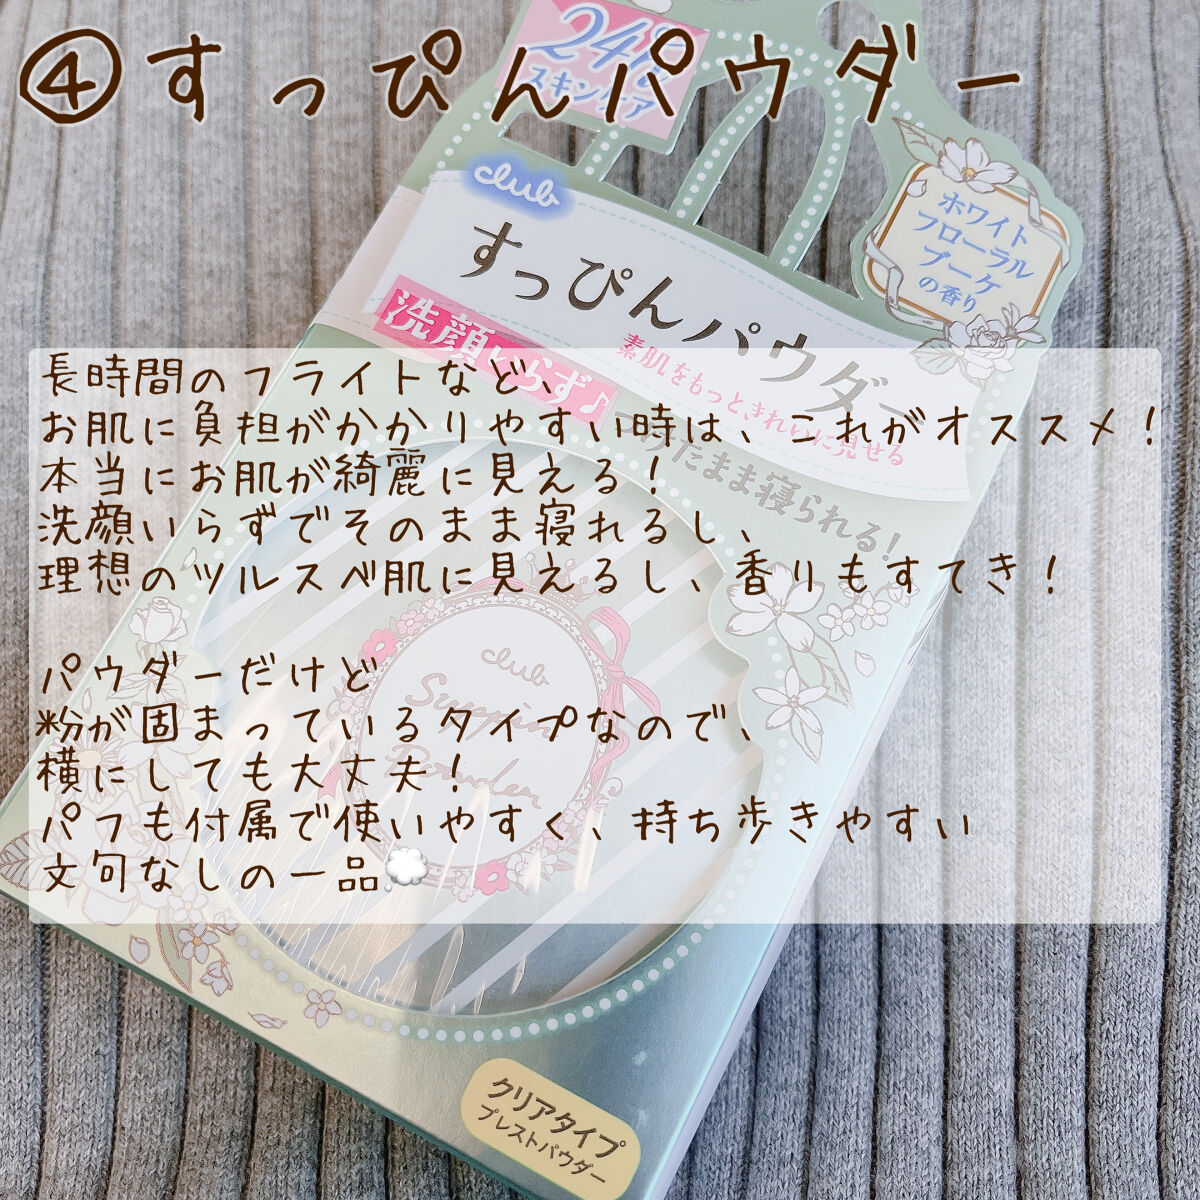 ④すっぴんパウダー
24h
スキンケア
club
すっぴんパウダー
ホワイト
フローラル
ブーケ
の香り
洗顔いらず♪
素肌をもっときれいに見せる
まま寝られる！
長時間のフライトなど、
お肌に負担がかかりやすい時は、これがオススメ！
本当にお肌が綺麗に見える！
洗顔いらずでそのまま寝れるし、
理想のツルスベ肌に見えるし、香りもすてき！
パウダーだけど
粉が固まっているタイプなので、
横にしても大丈夫！
パフも付属で使いやすく、持ち歩きやすい
文句なしの一品💭
club
Suppin
Powder
クリアタイプ
プレストパウダー